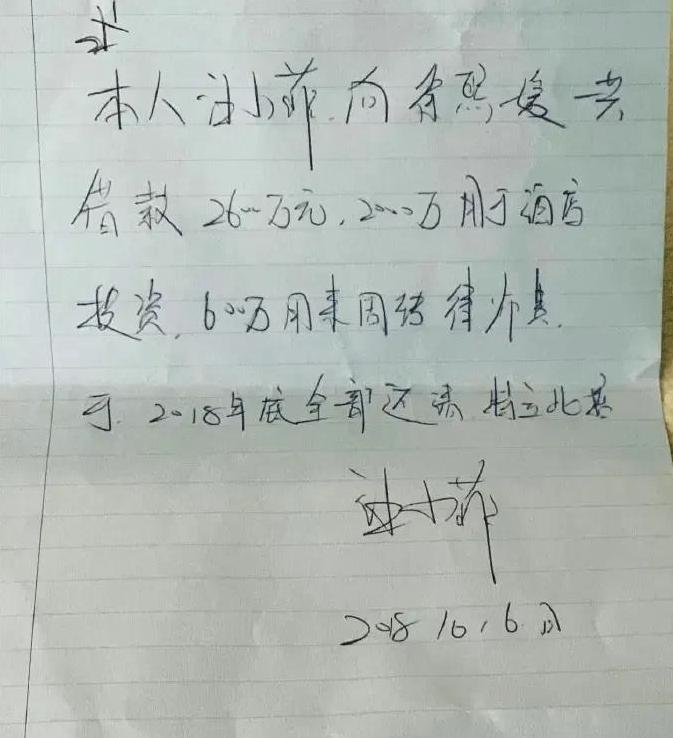 本人汪小菲向徐熙媛共
借款2600万元,2000万用于酒店
投资,600万用来周转律师费,
于2018年底全部还清.特立此据
汪小菲
2018 10,6日